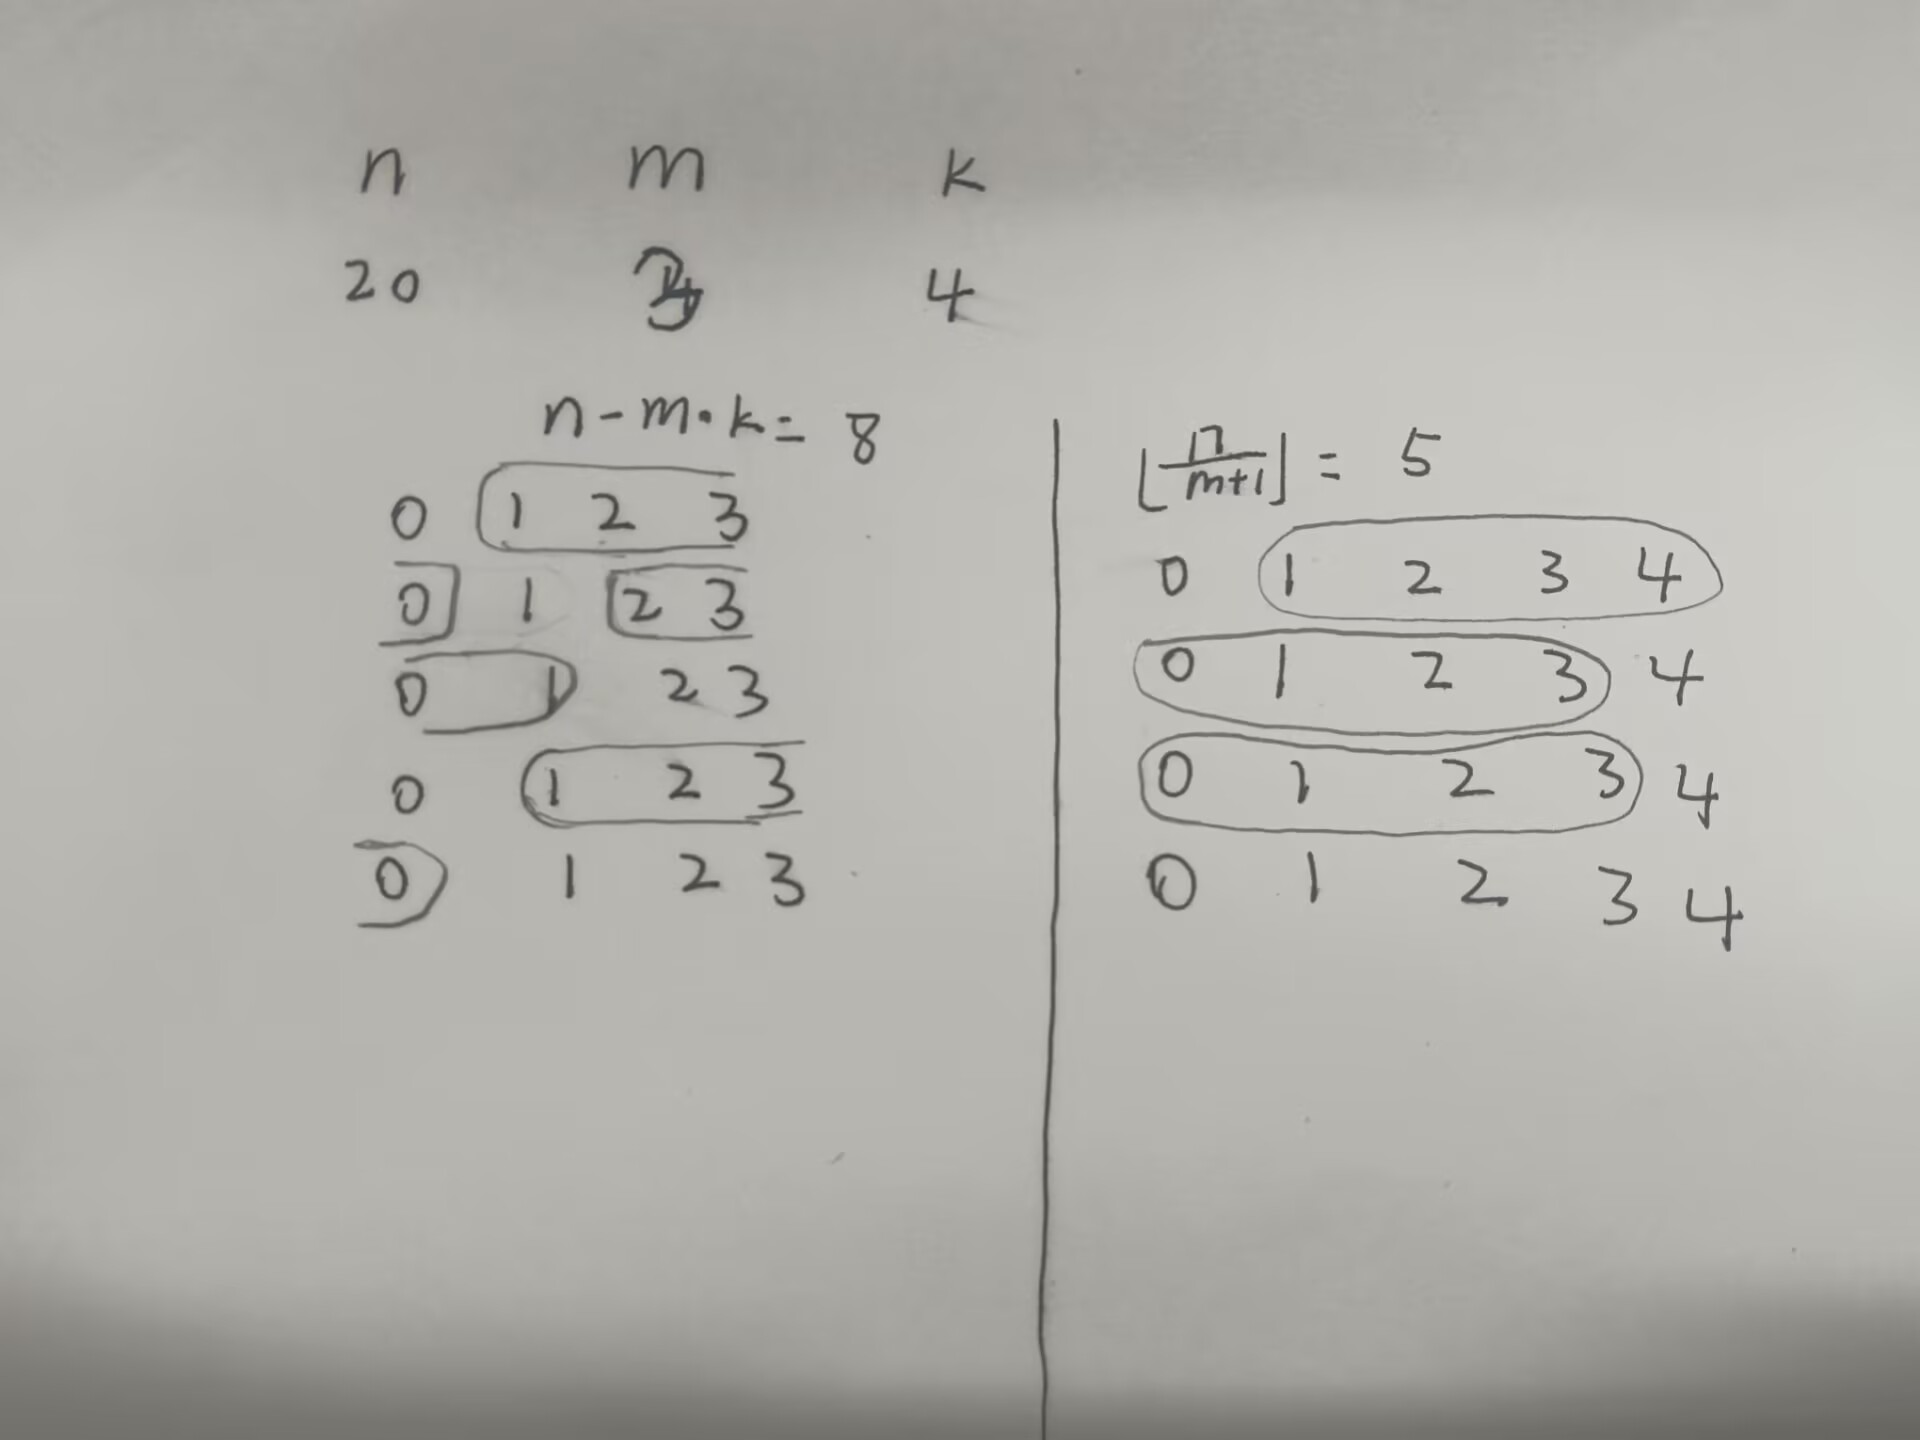 n m k
20 4
n - m · k = 8
0 1 2 3
0 1 2 3
0 1 2 3
0 1 2 3
0 1 2 3
⌊n/(m+1)⌋ = 5
0 1 2 3 4
0 1 2 3 4
0 1 2 3 4
0 1 2 3 4